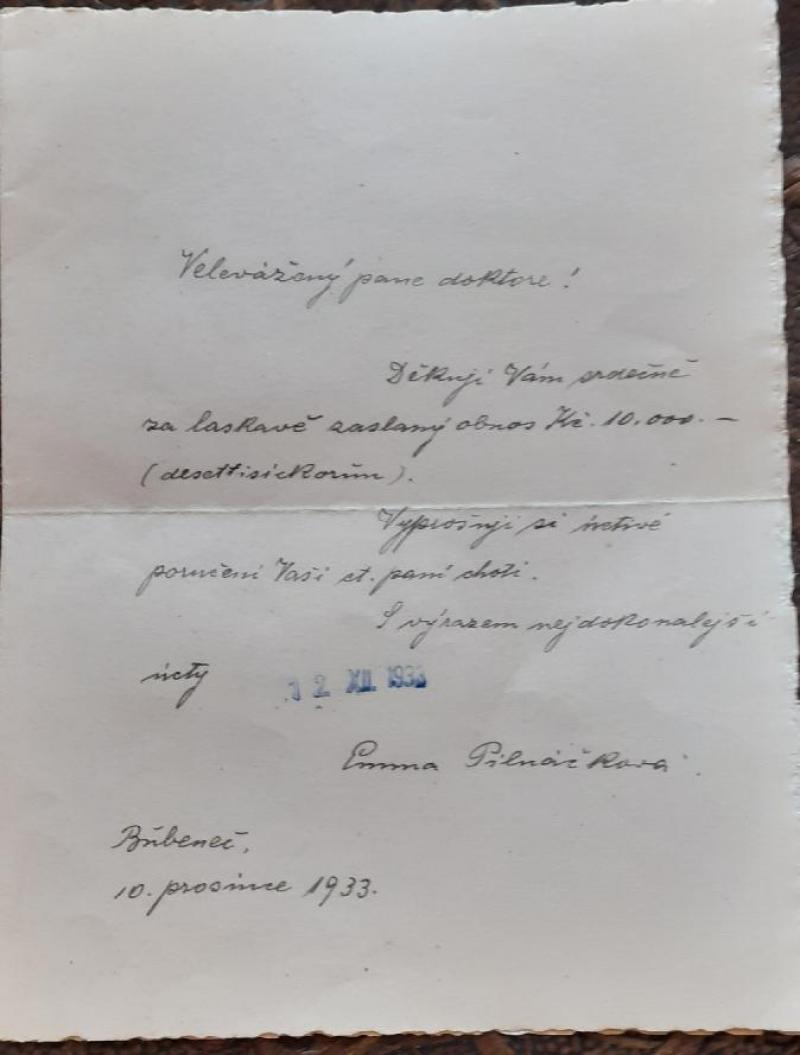 Velevážený pane doktore!
Děkuji Vám srdečně
za laskavě zaslaný obnos Kč. 10.000.—
(desettisíckorun).
Vyprošuji si uctivé
poručení Vaší ct. paní choti.
S výrazem nejdokonalejší
úcty
12 XII. 1933
Emma Pilnáčková.
Bubeneč,
10. prosince 1933.